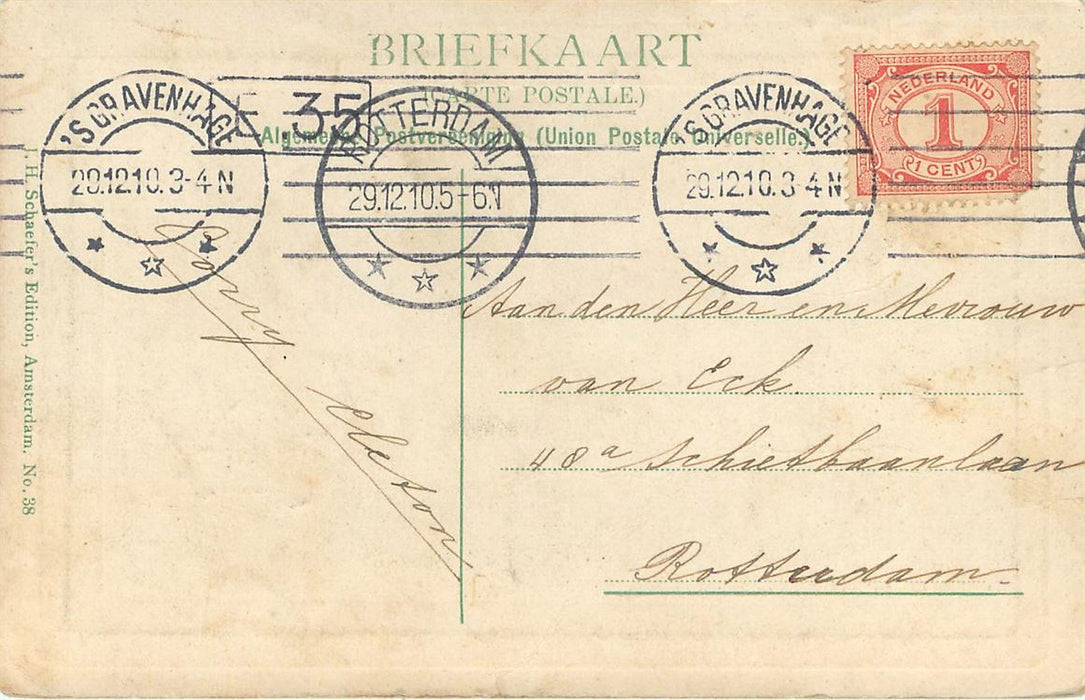 BRIEFKAART
(CARTE POSTALE.)
Algemeene Postvereeniging (Union Postale Universelle.)
'S GRAVENHAGE
29.12.10.3-4 N
35
ROTTERDAM
29.12.10.5-6.N
'S GRAVENHAGE
29.12.10.3-4 N
NEDERLAND
1
1 CENT
J. H. Schaefer's Edition, Amsterdam. No. 38
Aan den Heer en Mevrouw
van Eck.
48a Schietbaanlaan
Rotterdam.
Corry